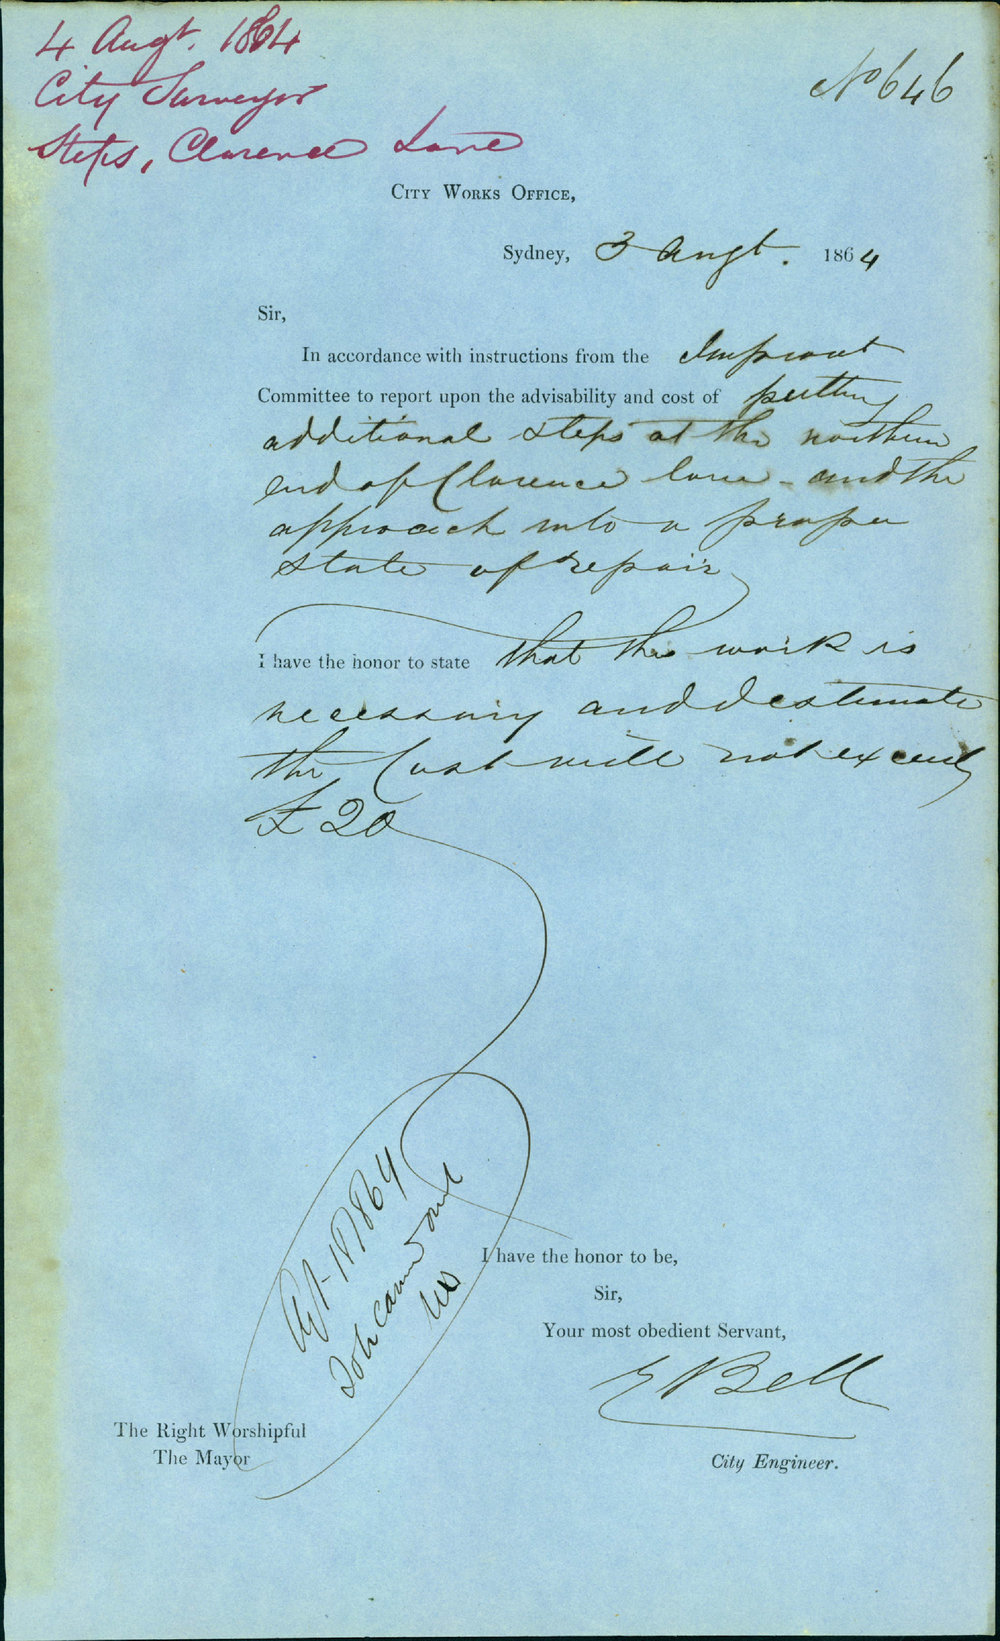 4 Augt. 1864
City Surveyor
Steps, Clarence Lane
No 646
City Works Office,
Sydney, 3 Augt. 1864
Sir,
In accordance with instructions from the Improvmt
Committee to report upon the advisability and cost of putting
additional steps at the northern
end of Clarence lane - and the
approach into a proper
state of repair
I have the honor to state that the work is
necessary and I estimate
the Cost will not exceed
£20
1864
I have the honor to be,
Sir,
Your most obedient Servant,
E Bell
The Right Worshipful
The Mayor
City Engineer.